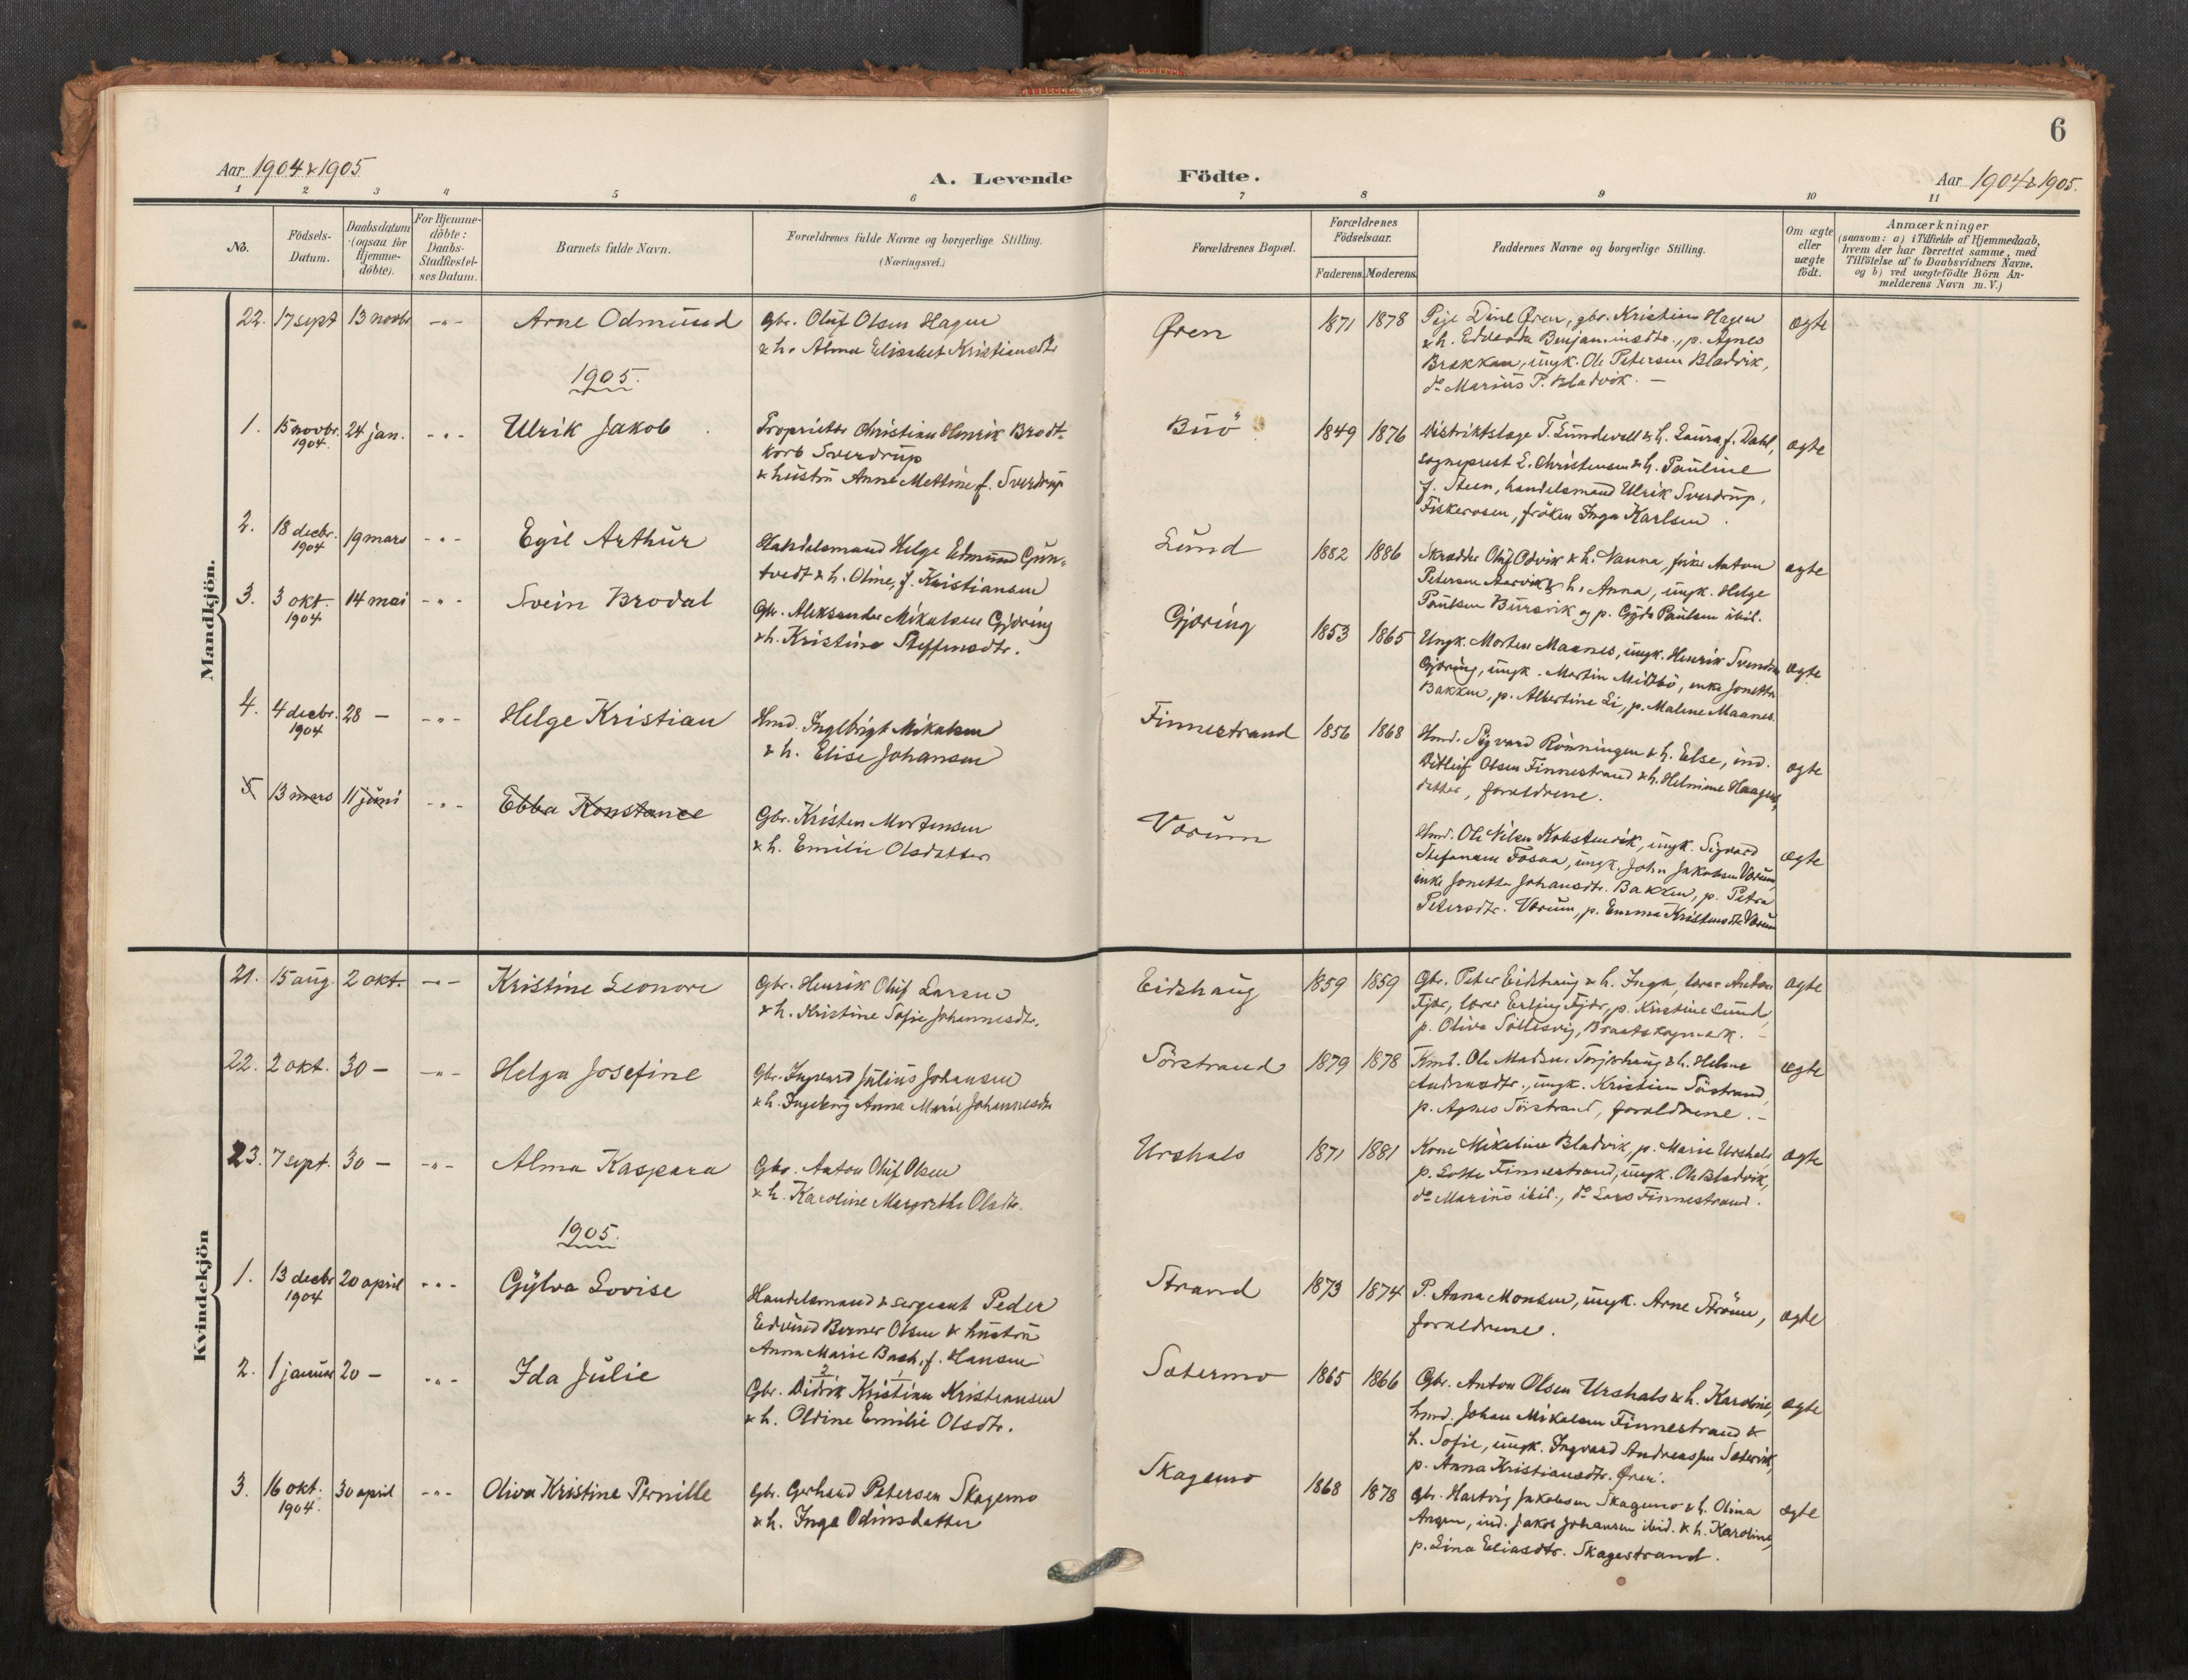 6
Aar 1904 & 1905
A. Levende Födte.
Aar 1904 & 1905.
1 2 3 4 5 6 7 8 9 10 11
No.
Födsels-
Datum.
Daabsdatum
(ogsaa for
Hjemme-
döbte).
For Hjemme-
döbte:
Daabs-
Stadfæstel-
ses Datum.
Barnets fulde Navn.
Forældrenes fulde Navne og borgerlige Stilling.
(Næringsvei.)
Forældrenes Bopæl.
Forældrenes
Födselsaar.
Faderens. Moderens.
Faddernes Navne og borgerlige Stilling.
Om ægte
eller
uægte
födt.
Anmærkninger
(saasom: a) i Tilfælde af Hjemmedaab,
hvem der har forrettet samme, med
Tilföielse af to Daabsvidners Navne.
og b) ved uægtefödte Börn An-
melderens Navn m. V.)
Mandkjön.
22. 17 sept 13 novbr -"- Arne Odmund
gbr. Oluf Olsen Hagen
& h. Alma Elisabet Kristiansdtr
Øren
1871 1878
Pige Dina Øren, gbr. Kristian Hagen
& h. Edvarda Benjaminsdtr., p. Agnes
Brakkan, ungk. Ole Petersen Bladvik,
do Marius P. Bladvik. -
ægte
1905.
1. 15 novbr. 1904 24 jan. -"- Ulrik Jakob
Proprietær Christian Henrik Brodt-
korb Sverdrup
& hustru Anne Mettine f. Sverdrup
Buö
1849 1876
Distriktslæge T. Lundevall & h. Laura f. Dahl,
sogneprest E. Christensen & h. Pauline
f. Steen, handelsmand Ulrik Sverdrup,
Fiskerosen, fröken Inga Karlsen.
ægte
2. 18 decbr. 1904 19 mars -"- Egil Arthur
Handelsmand Helge Edmund Gun-
tvedt & h. Oline, f. Kristiansen
Lund
1882 1886
Skrædder Oluf Odvik & h. Nanna, Anton
Petersen Aarvik & h. Anna, ungk. Helge
Paulsen Bursvik og p. Gyda Paulsen ibid.
ægte
3. 3 okt. 1904 14 mai -"- Svein Brodal
Gbr. Aleksander Mikalsen Gjæring
& h. Kristine Steffensdtr.
Gjæring
1853 1865
Ungk. Morten Maanes, ungk. Henrik Svendsen
Gjæring, ungk. Martin Midtbö, enke Jonetta
Bakken, p. Albertine Li, p. Malene Maanes.
ægte
4. 4 decbr. 1904 28 - -"- Helge Kristian
Hmd. Ingebrigt Mikalsen
& h. Elise Johansen
Finnestrand
1856 1868
Hmd. Sigvard Rönningen & h. Else, ind.
Ditleif Olsen Finnestrand & h. Helmine Haagens
datter, forældrene.
ægte
5 13 mars 11 juni -"- Ebba Konstance
Gbr. Kristen Mortensen
& h. Emilie Olsdatter
Værum
Hmd. Ole Nilsen, ungk. Sigvard
Stefansen Fosaa, ungk. John Jakobsen Værum,
enke Jonetta Johansdtr. Bakken, p. Petra
Petersdtr. Værum, p. Emma Kristensdtr. Værum
ægte
Kvindekjön
21. 15 aug. 2 okt. -"- Kristine Leonore
Gbr. Henrik Oluf Larsen
& h. Kristine Sofie Johannesdtr.
Eidshaug
1859 1859
Gbr. Peter Eidshaug & h. Inga, lærer Anton
Fjær, lærer Erling Fjær, p. Kristine Lund,
p. Oliva Söllesvig, Braatskogmark. -
ægte
22. 2 okt. 30 - -"- Helga Josefine
Gbr. Ingvard Julius Johansen
& h. Ingeborg Anna Marie Johannesdtr
Sörstrand
1879 1878
Kmd. Ole Madsen Torjorhaug & h. Helene
Andreasdtr., ungk. Kristian Sörstrand,
p. Agnes Sörstrand, forældrene. -
ægte
23. 7 sept. 30 - -"- Alma Kaspara
Gbr. Anton Oluf Olsen
& h. Karoline Margrethe Olsdtr.
Urshals
1871 1881
Kone Mikaline Bladvik, p. Marie Urshals
p. Lotte Finnestrand, ungk. Ole Bladvik,
do Marius ibid., do Lars Finnestrand.
ægte
1905.
1. 13 decbr 1904 20 april -"- Gylva Lovise
Handelsmand & sergeant Peder
Edvind Berner Olsen & hustru
Anna Marie Bach, f. Hansen
Strand
1873 1874
P. Anna Monsen, ungk. Arne Ström,
forældrene.
ægte
2. 1 januar 20 - -"- Ida Julie
2 1
Gbr. Didrik Kristian Kristiansen
& h. Oldine Emilie Olsdtr.
Sætermo
1865 1866
Gbr. Anton Olsen Urshals & h. Karoline,
hmd. Johan Mikalsen Finnestrand &
h. Sofie, ungk. Ingvard Andreassen Sætervik,
p. Anna Kristiansdtr. Øren.
ægte
3. 16 okt. 1904. 30 april -"- Oliva Kristine Pernille
Gbr. Gerhard Petersen Skagemo
& h. Inga Odinsdatter
Skagemo
1868 1878
Gbr. Hartvig Jakobsen Skagemo & h. Olina
Angen, ind. Jakob Johansen ibid. & h. Karoline,
p. Lina Eliasdtr. Skagestrand.
ægte